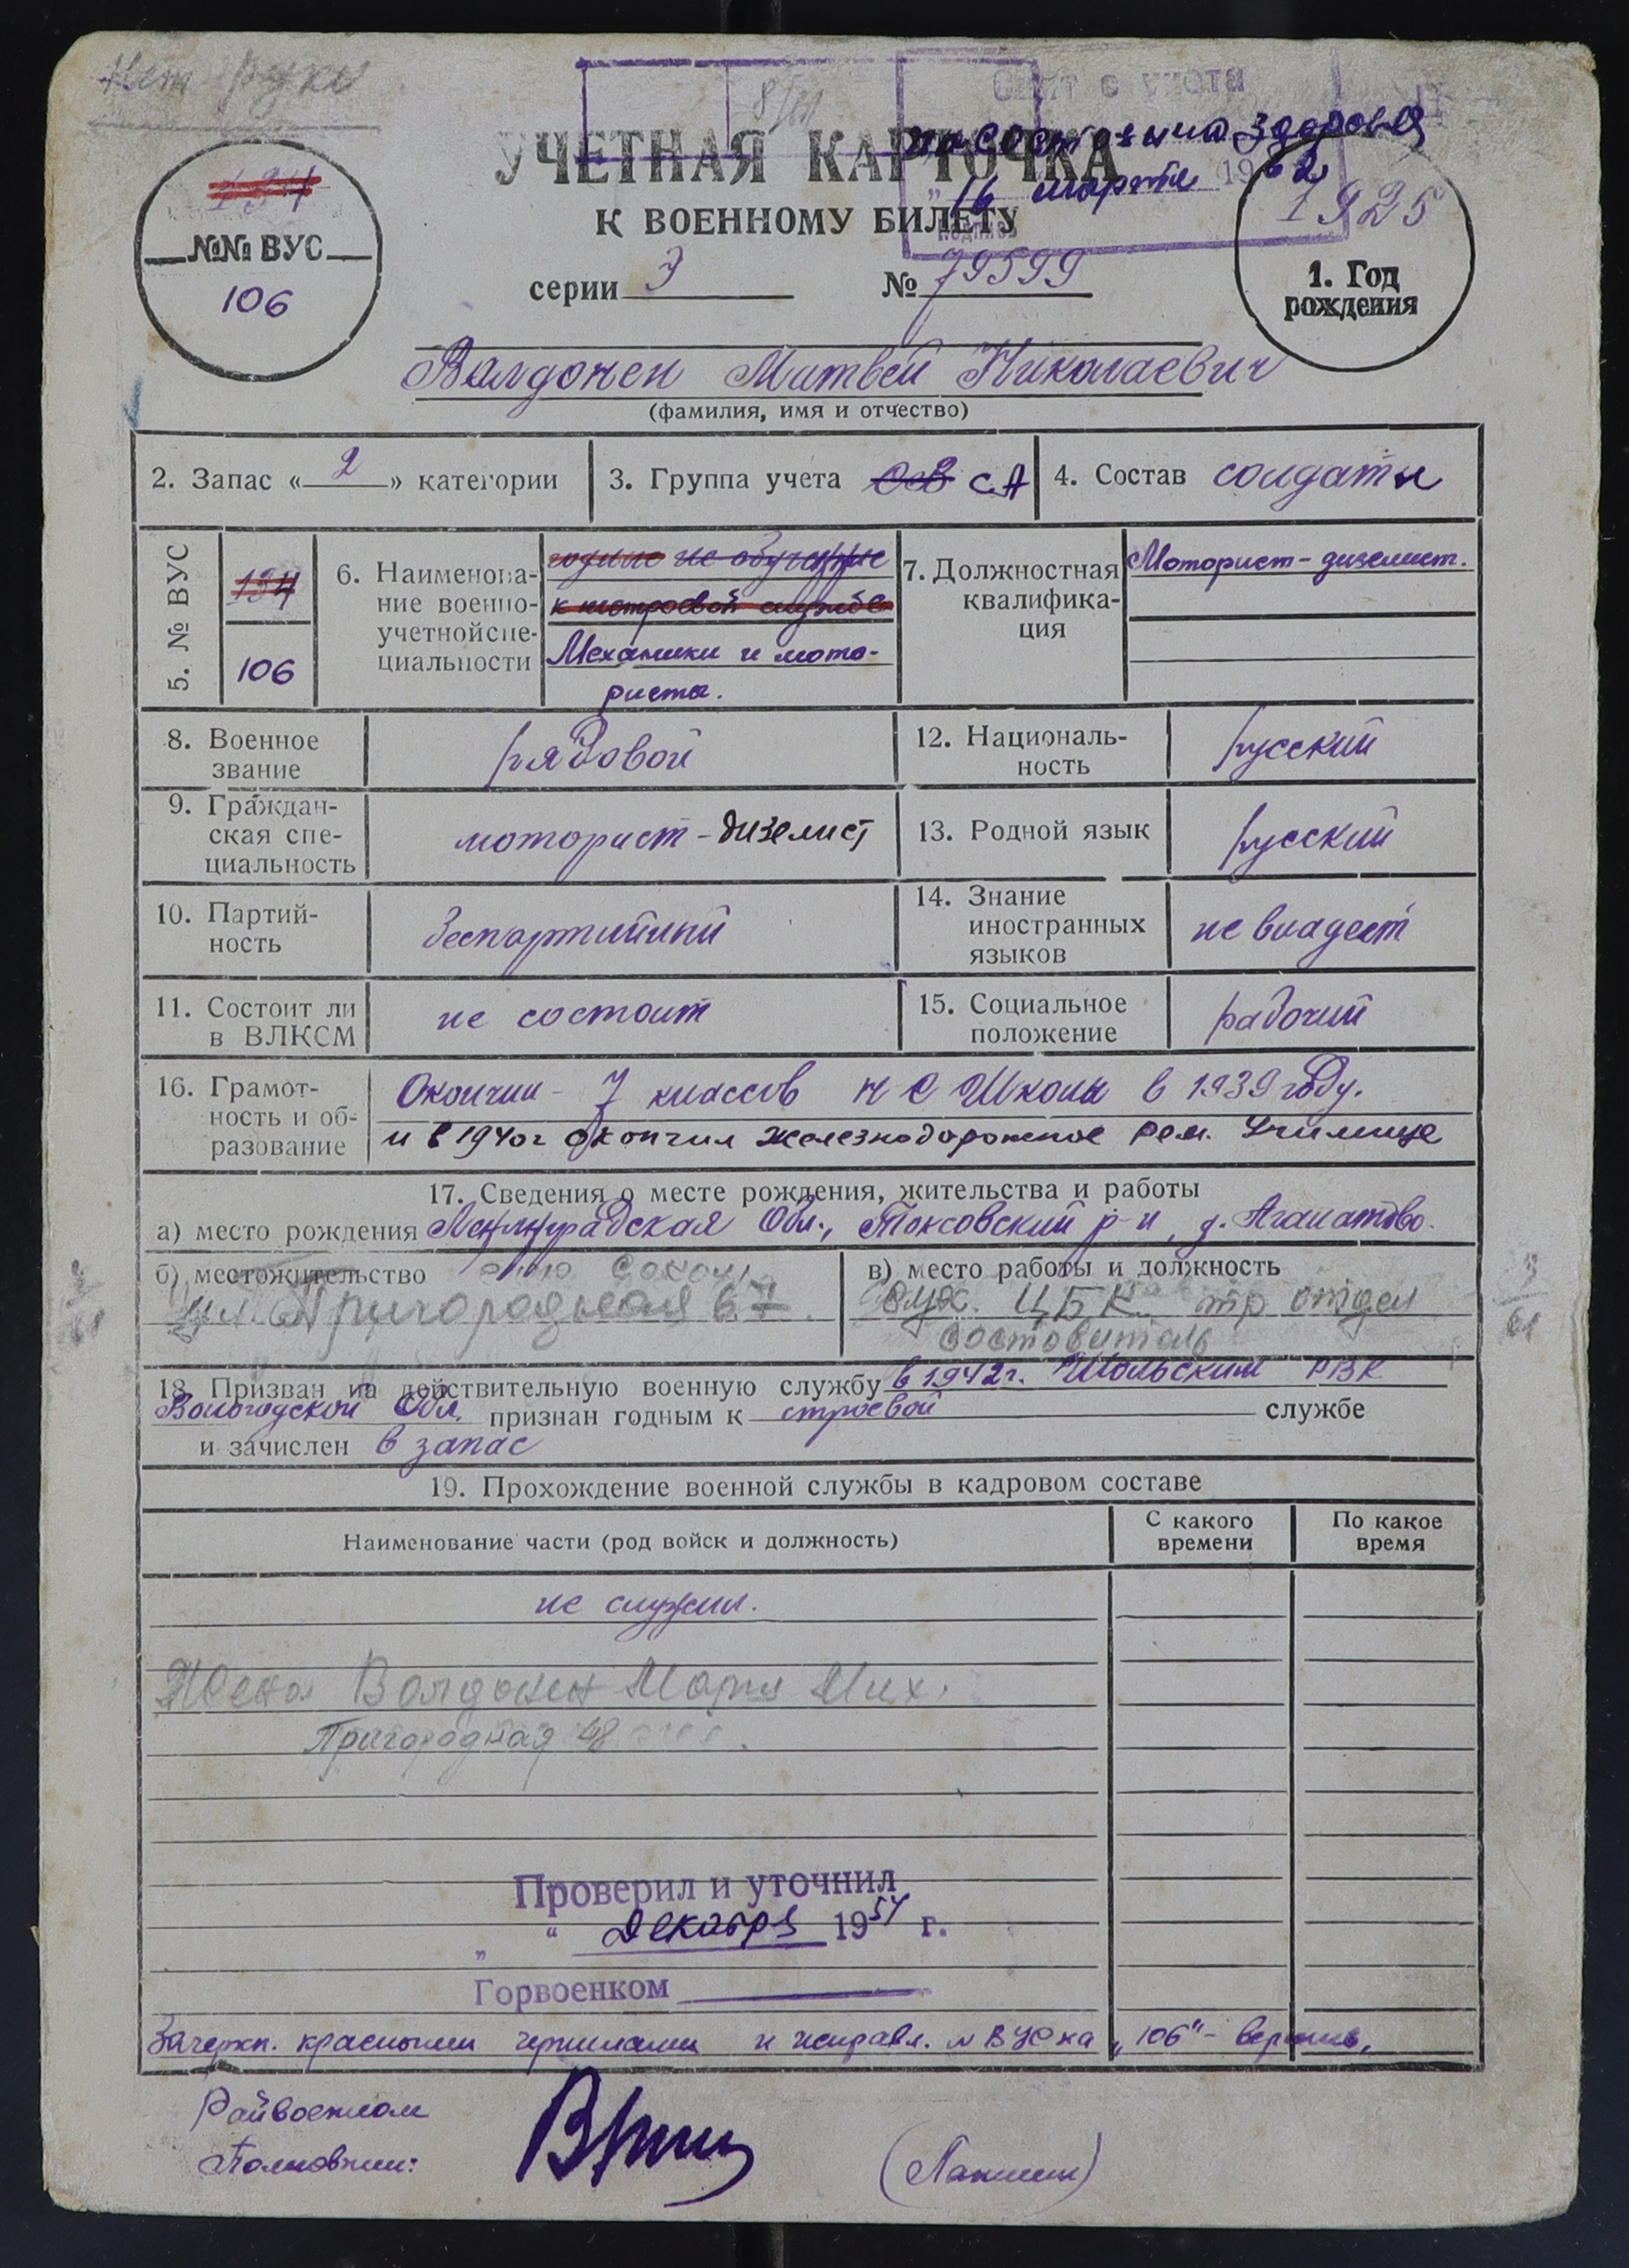 Нет руки
8/61
Снят с учета
по состоянию здоровья
УЧЕТНАЯ КАРТОЧКА
„16 марта 1962
подпись
К ВОЕННОМУ БИЛЕТУ
194
№№ ВУС
106
серии З № 79599
1925
1. Год
рождения
Валдонен Матвей Николаевич
(фамилия, имя и отчество)
2. Запас « 2 » категории
3. Группа учета ОВ СА
4. Состав солдаты
5. № ВУС
194
106
6. Наименова-
ние военно-
учетной спе-
циальности
годные не обученные
к нестроевой службе
Механики и мото-
ристы.
7. Должностная
квалифика-
ция
Моторист-дизелист.
8. Военное
звание
рядовой
12. Националь-
ность
русский
9. Граждан-
ская спе-
циальность
моторист-дизелист
13. Родной язык
русский
10. Партий-
ность
беспартийный
14. Знание
иностранных
языков
не владеет
11. Состоит ли
в ВЛКСМ
не состоит
15. Социальное
положение
рабочий
16. Грамот-
ность и об-
разование
Окончил 7 классов Н С Школы в 1939 году.
и в 1940г окончил железнодорожное рем. Училище
17. Сведения о месте рождения, жительства и работы
а) место рождения Ленинградская Обл., Токсовский р-н, д. Агалатово.
б) местожительство
ул. Пригородная
в) место работы и должность
ЦБК тр отдел
составитель
18. Призван на действительную военную службу в 1942г. Шольским РВК
Вологодской Обл. признан годным к строевой службе
и зачислен в запас
19. Прохождение военной службы в кадровом составе
Наименование части (род войск и должность)
С какого
времени
По какое
время
не служил.
Жена Валдонен Мария Мих.
Пригородная 48
Проверил и уточнил
„ “ Декабря 1954 г.
Горвоенком
Зачеркн. красными чернилами и исправл. № ВУС на „106“ - верно.
Райвоенком
Полковник:
(Лапшин)